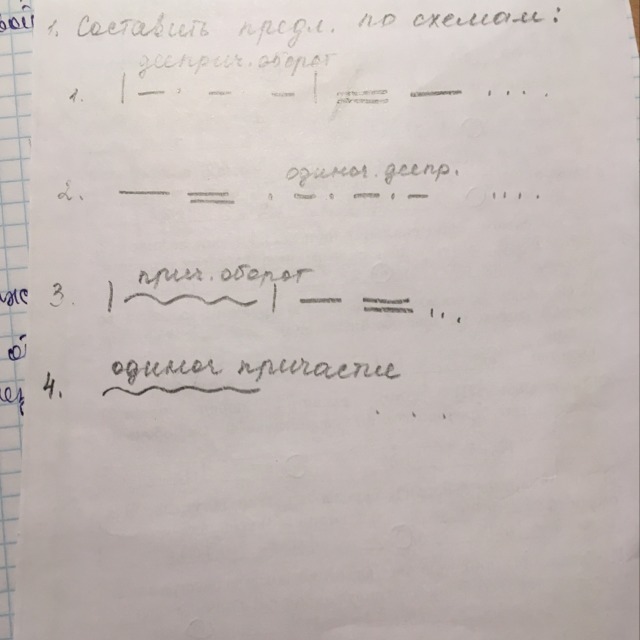 1. Составить предл. по схемам:
дееприч. оборот
1.
одиноч. деепр.
2.
прич. оборот
3.
одиноч причастие
4.